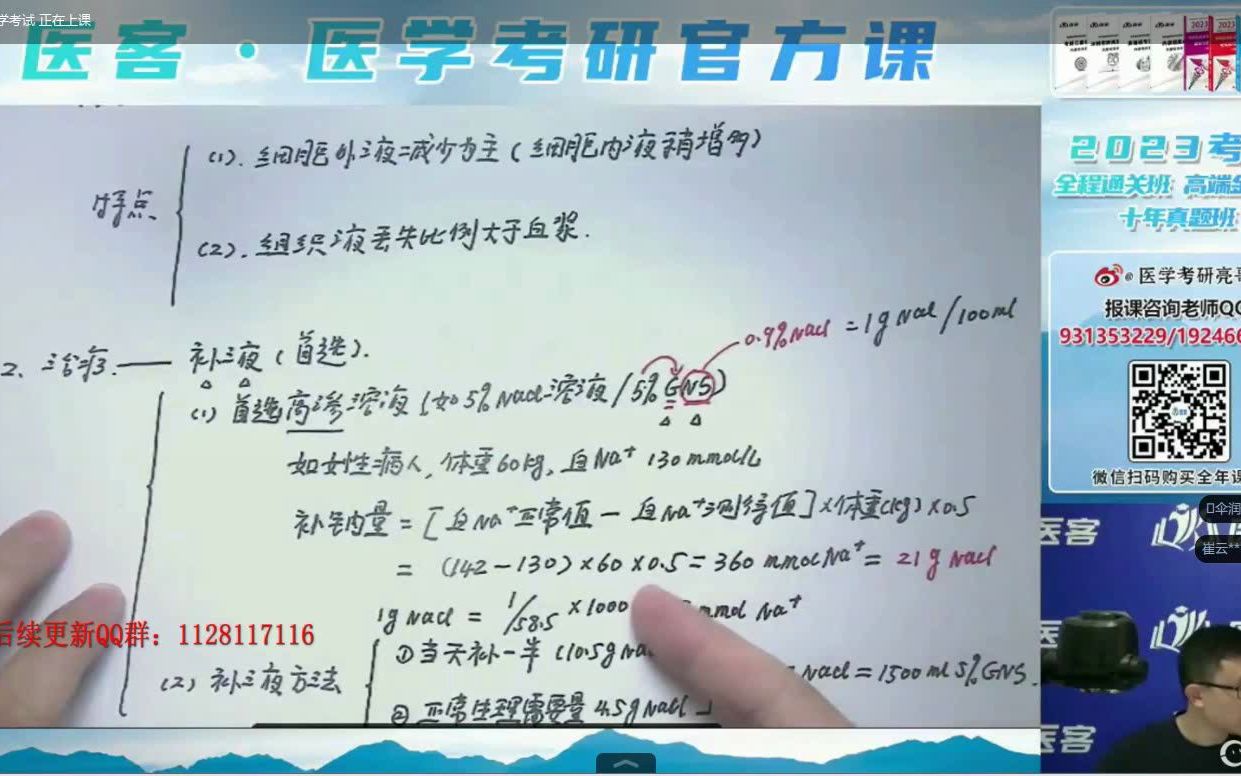 学考试 正在上课
医客·医学考研官方课
特点
(1). 细胞外液减少为主(细胞内液稍增多)
(2). 组织液丢失比例大于血浆.
2. 治疗. — 补液(首选).
0.9%Nacl = 1g Nacl/100ml
(1) 首选高渗溶液(如5%Nacl溶液/5%GNS)
如女性病人, 体重60kg, 血Na⁺ 130mmol/L
补钠量 = [血Na⁺正常值 - 血Na⁺测得值]×体重(kg)×0.5
= (142-130)×60×0.5 = 360 mmolNa⁺ = 21g Nacl
1g Nacl = 1/58.5 ×1000 mmol Na⁺
(2) 补液方法
①当天补一半 (10.5g Na
Nacl = 1500ml 5%GNS.
②正常生理需要量 4.5g Nacl
后续更新QQ群：1128117116
2023
2023考
全程通关班 高端
十年真题班
@医学考研亮哥
报课咨询老师QQ
931353229/192466
医客
微信扫码购买全年课
伞润
崔云**
医客
医
医客